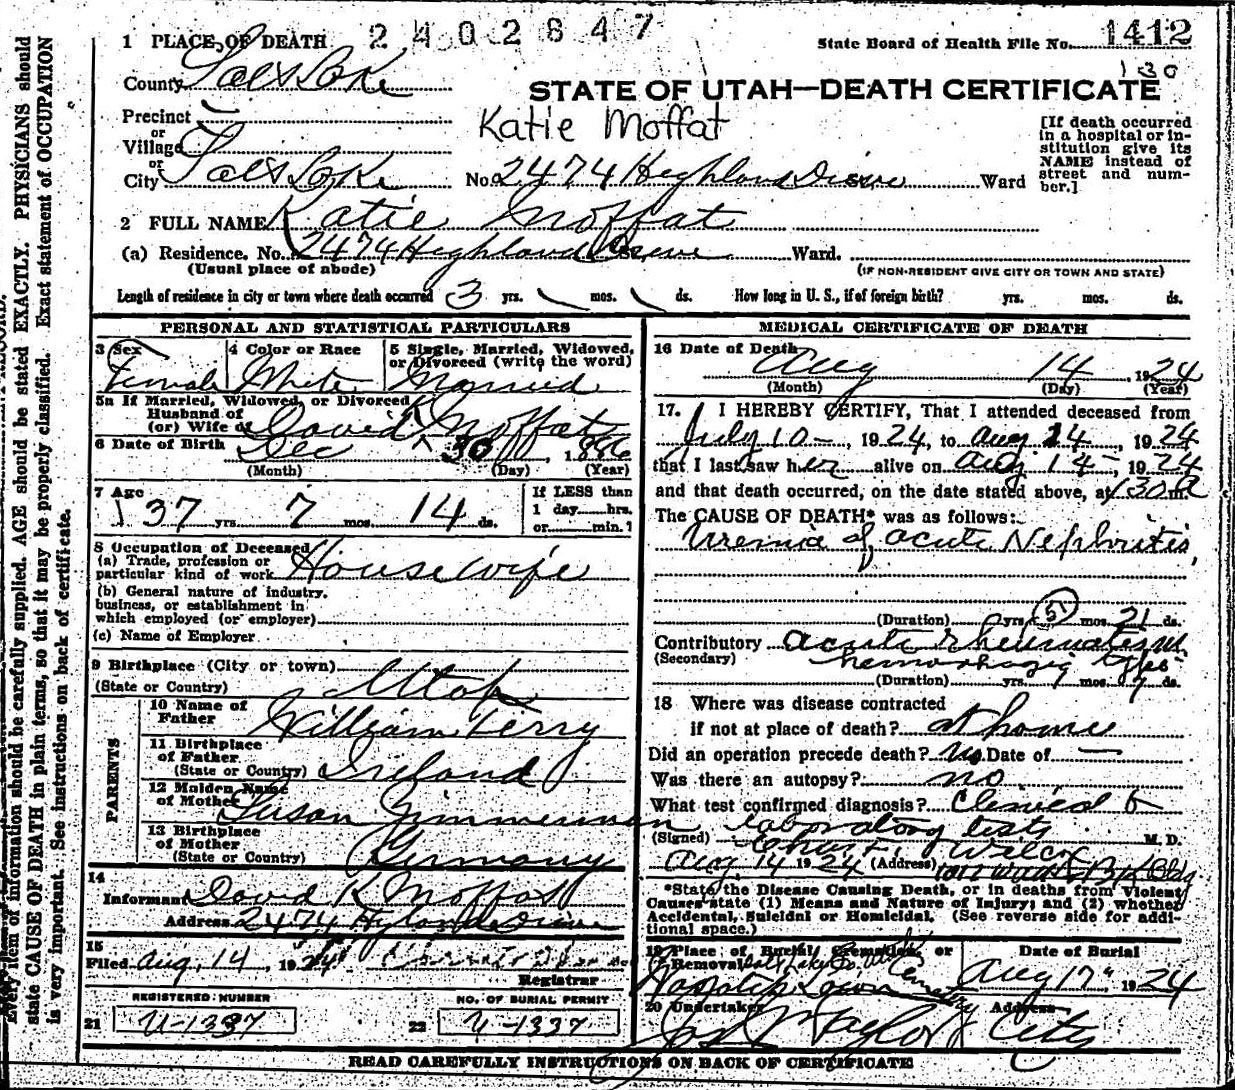 1 PLACE OF DEATH 2402647
State Board of Health File No. 1412
130
County Salt Lake
STATE OF UTAH—DEATH CERTIFICATE
Precinct
or
Village
Katie Moffat
[If death occurred in a hospital or institution give its NAME instead of street and number.]
or
City Salt Lake No. 2474 Highland Drive Ward
2 FULL NAME Katie Moffat
(a) Residence. No. 2474 Highland Drive Ward.
(Usual place of abode) (IF NON-RESIDENT GIVE CITY OR TOWN AND STATE)
Length of residence in city or town where death occurred 3 yrs. mos. ds. How long in U. S., if of foreign birth? yrs. mos. ds.
PERSONAL AND STATISTICAL PARTICULARS
3 Sex 4 Color or Race 5 Single, Married, Widowed, or Divorced (write the word)
Female White Married
5a If Married, Widowed, or Divorced
Husband of
(or) Wife of David K Moffat
6 Date of Birth Dec 30 1886
(Month) (Day) (Year)
7 Age 37 yrs 7 mos. 14 ds.
If LESS than
1 day hrs.
or min.?
8 Occupation of Deceased
(a) Trade, profession or
particular kind of work Housewife
(b) General nature of industry,
business, or establishment in
which employed (or employer)
(c) Name of Employer
9 Birthplace (City or town)
(State or Country) Utah
PARENTS
10 Name of
Father William Terry
11 Birthplace
of Father
(State or Country) Ireland
12 Maiden Name
of Mother Susan Zimmerman
13 Birthplace
of Mother
(State or Country) Germany
14
Informant David K Moffat
Address 2474 Hyland Drive
15
Filed Aug, 14, 1924
Registrar
REGISTERED NUMBER
21 U-1337
NO. OF BURIAL PERMIT
22 U-1337
MEDICAL CERTIFICATE OF DEATH
16 Date of Death Aug 14, 1924
(Month) (Day) (Year)
17. I HEREBY CERTIFY, That I attended deceased from
July 10 -, 1924, to Aug 14, 1924
that I last saw her alive on Aug 14-, 1924
and that death occurred, on the date stated above, at 130 a m.
The CAUSE OF DEATH* was as follows:
Uremia of acute Nephritis,
(Duration) 0 yrs. mos. 21 ds.
51
Contributory acute rheumatism
(Secondary) hemorrhagic type
(Duration) yrs. mos. 7 ds.
18 Where was disease contracted
if not at place of death? at home
Did an operation precede death? No. Date of —
Was there an autopsy? no
What test confirmed diagnosis? Clinical &
laboratory tests
(Signed) Wilcox M. D.
Aug. 14 1924 (Address) Bk Bldg
*State the Disease Causing Death, or in deaths from Violent
Causes state (1) Means and Nature of Injury; and (2) whether
Accidental, Suicidal or Homicidal. (See reverse side for additional space.)
19 Place of Burial, Cremation or Removal Date of Burial
Wasatch Lawn Cemetery Aug 17" 1924
20 Undertaker Address
Jos. Taylor City
READ CAREFULLY INSTRUCTIONS ON BACK OF CERTIFICATE
Every item of information should be carefully supplied. AGE should be stated EXACTLY. PHYSICIANS should
state CAUSE OF DEATH in plain terms, so that it may be properly classified. Exact statement of OCCUPATION
is very important. See instructions on back of certificate.